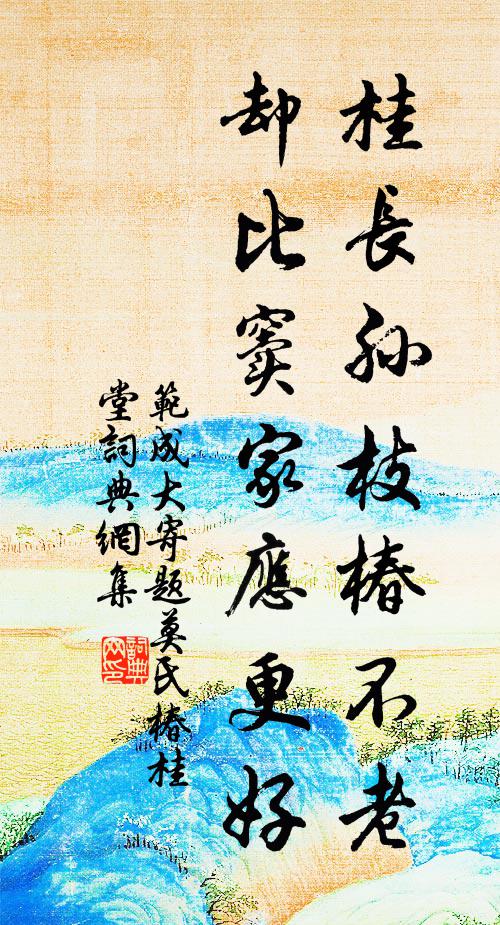 桂長孫枝椿不老
却比竇家應更好
範成大寄題莫氏椿桂
堂詞典網集
詞典網印